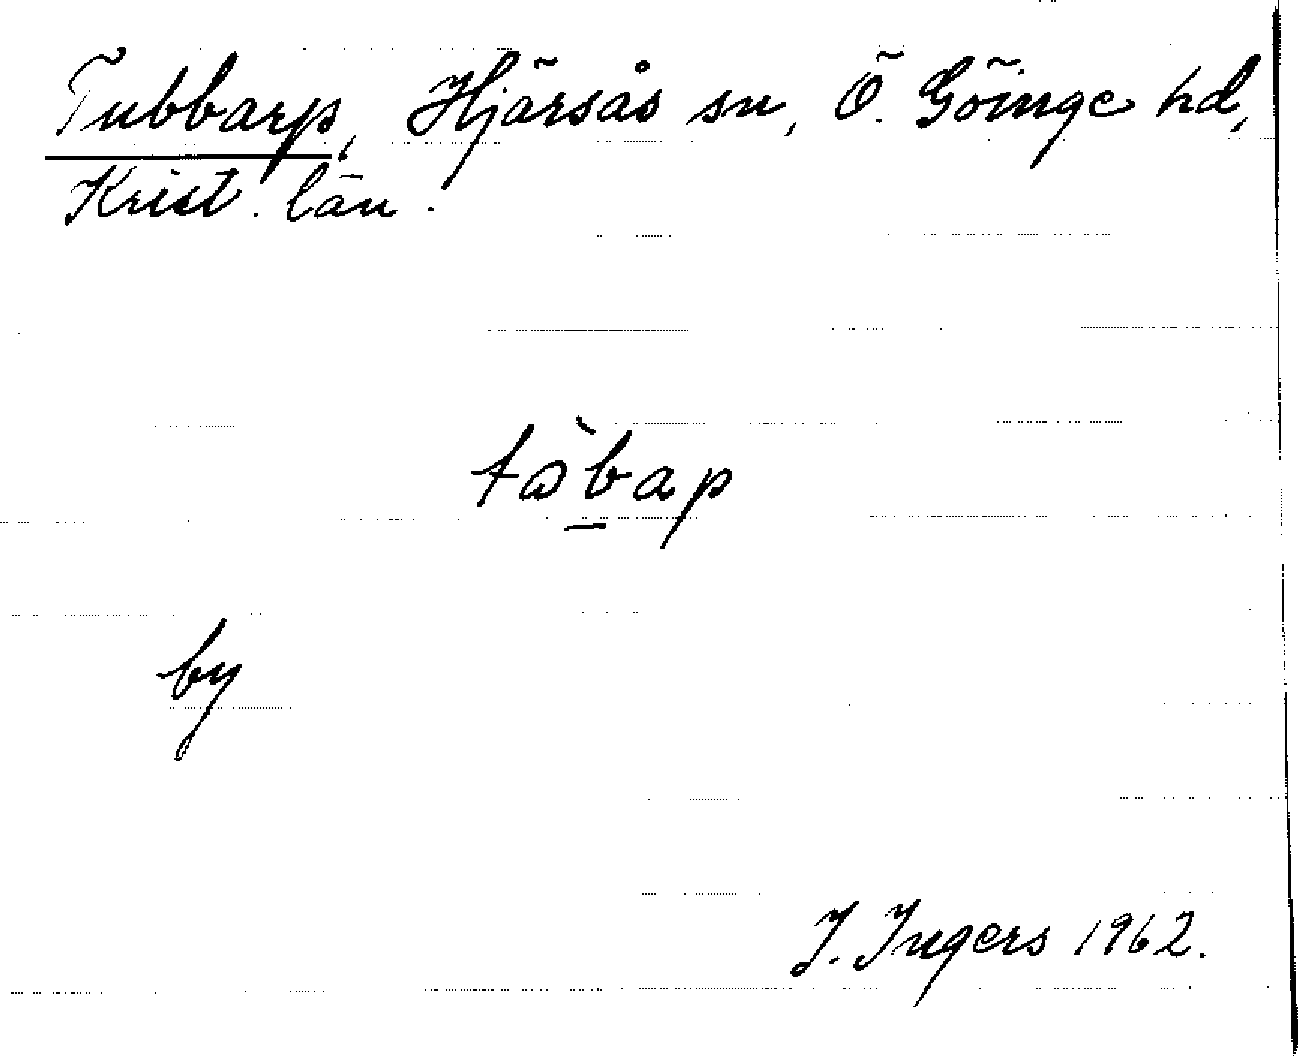 Tubbarp, Hjärsås sn, Ö. Göinge hd,
Krist. län.
by
I. Ingers 1962.